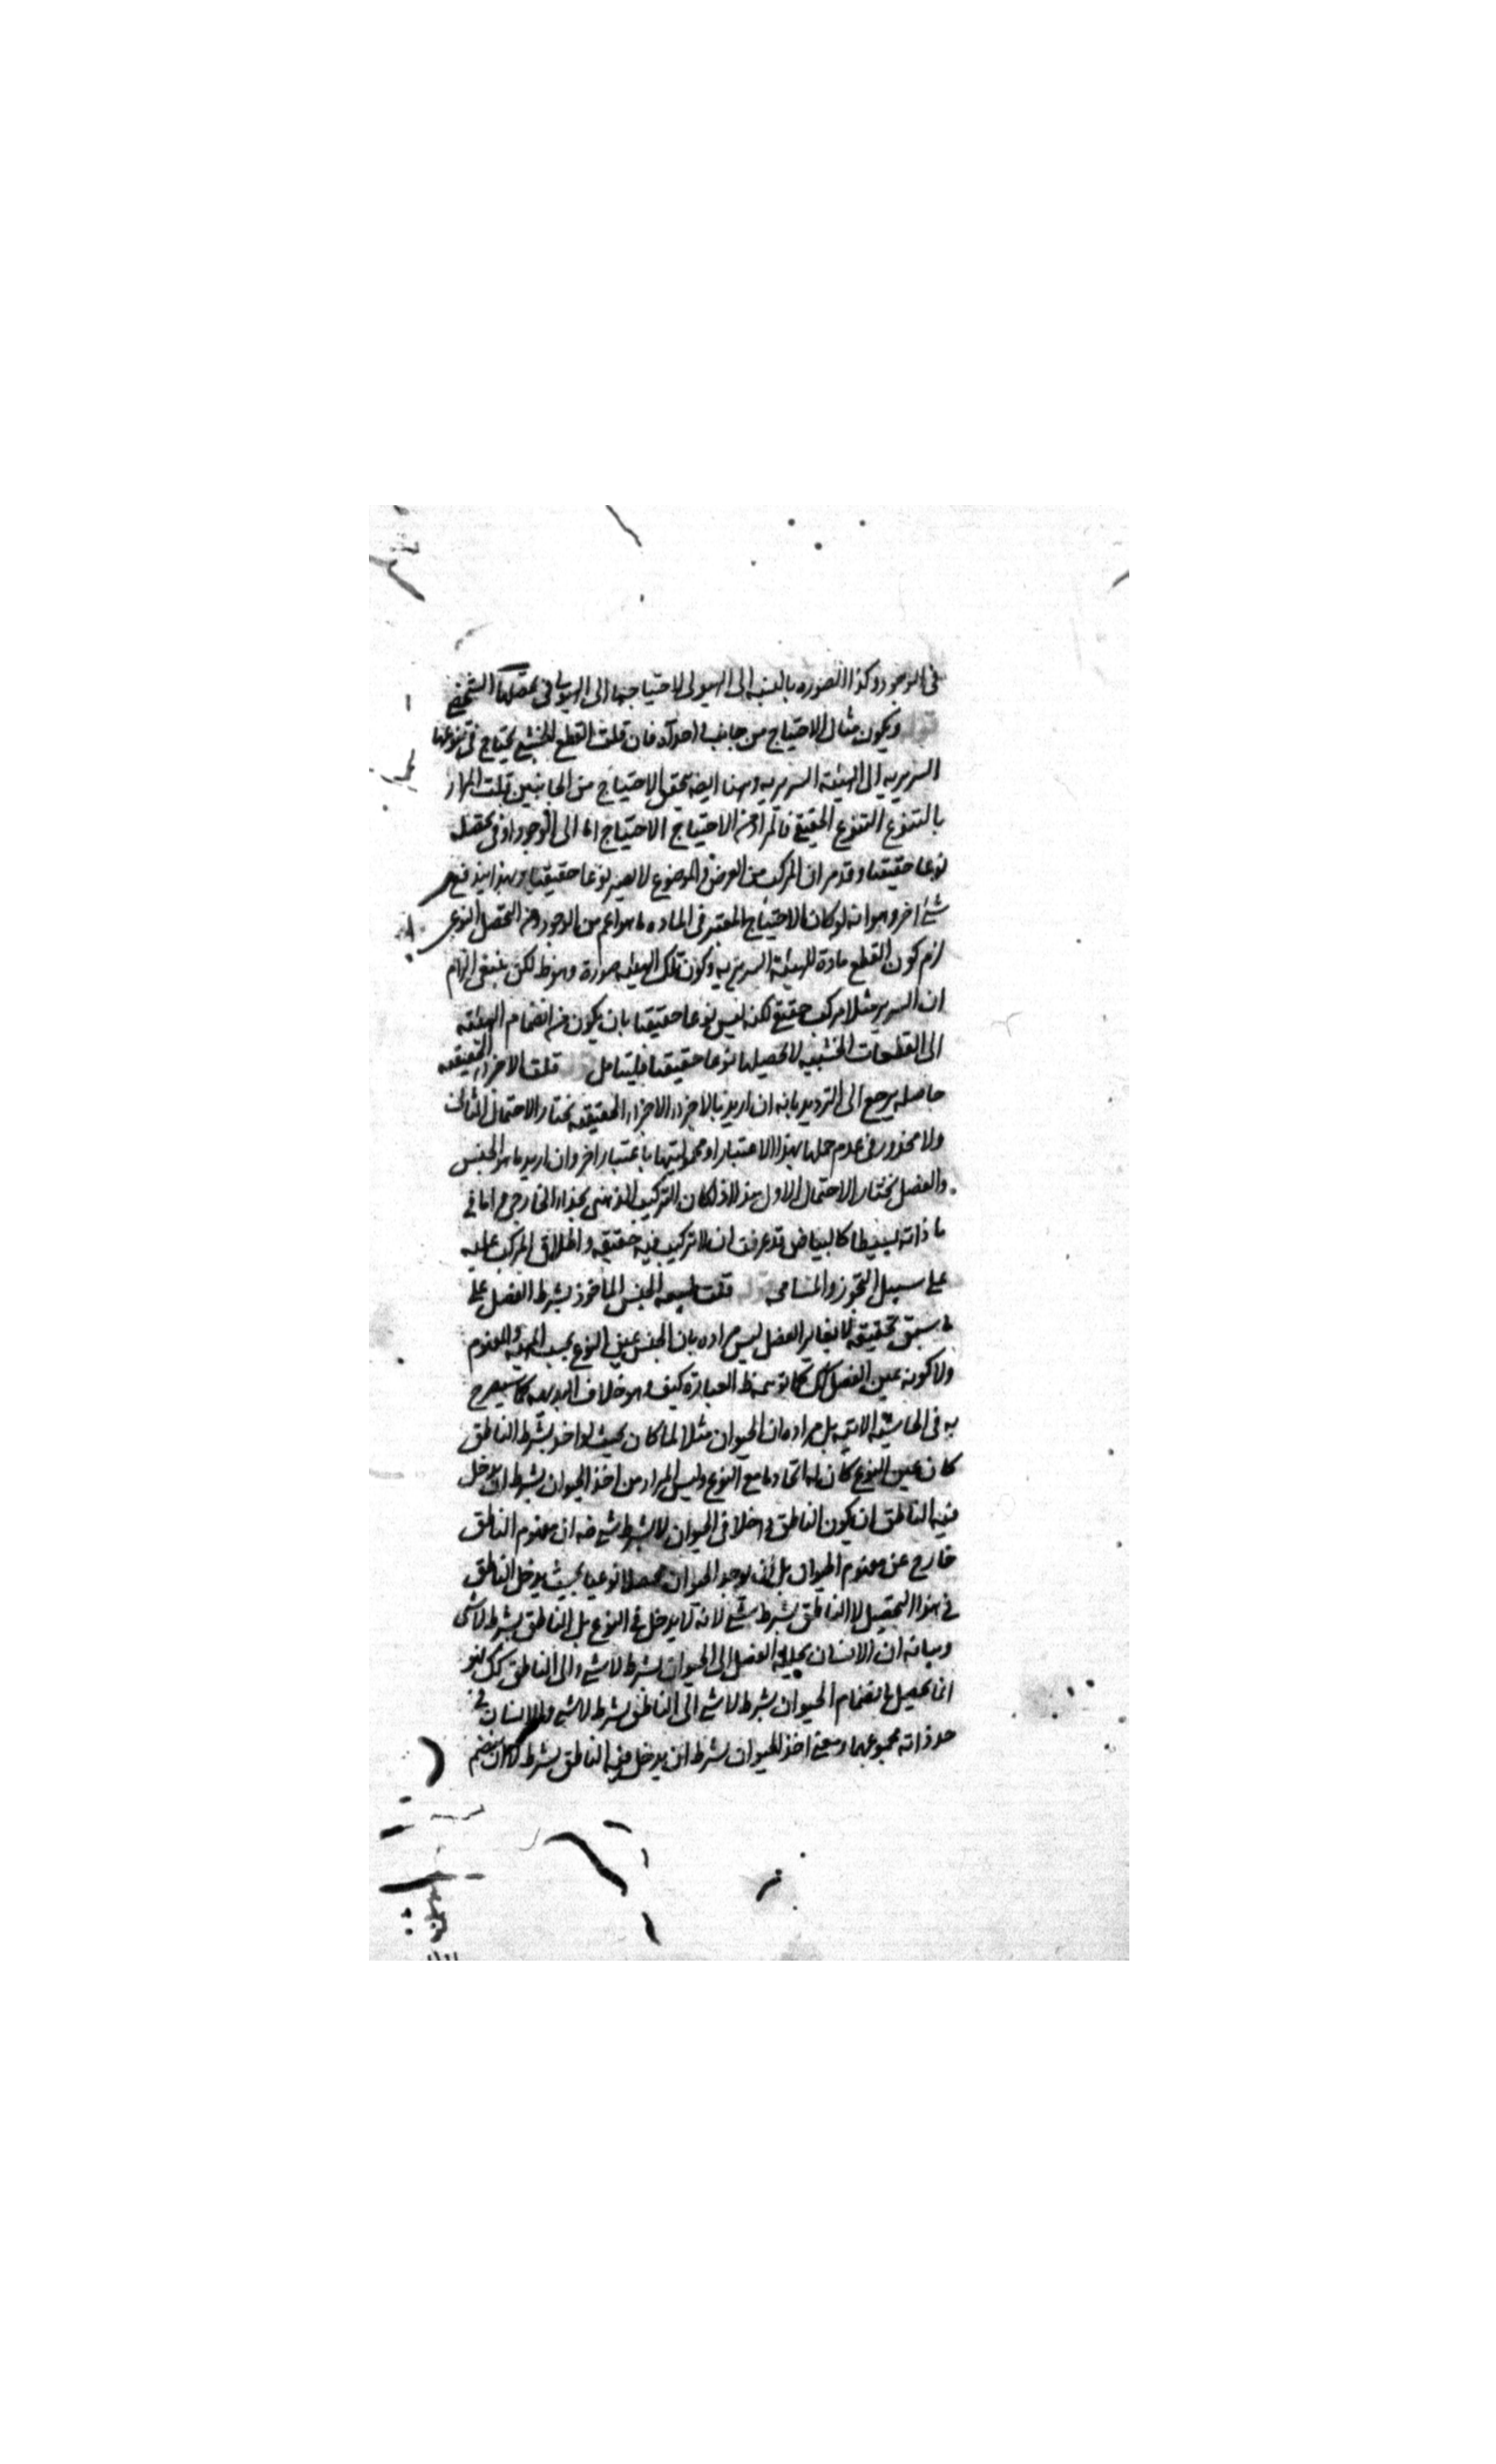 في الوجود وكذا الصوره بالنسبه الى الهيولى لاحتياجها الى الهيولى في تحصلها الشخصي
قوله ويكون مثال الاحتياج من جانب واحد آه فان قلت القطع الخشبي يحتاج في تنوعها
السريريه الى الهيئة السريريه وهنا ايضه تحقق الاحتياج من الجانبين قلت المراد
بالتنوع التنوع الحقيقي فالمراد من الاحتياج الاحتياج اما الى الوجود او في تحصله
نوعا حقيقيا وقد مر ان المركب من العرض والموضوع لا يصير نوعا حقيقيا وبهذا يندفع
شئ اخر وهو انه لو كان الاحتياج المعتبر في الماده ما هو اعم من الوجود ومن التحصل النوعي
لزم كون القطع مادة للهيئة السريريه وكون تلك الهيئه صورة وهو ظ لكن ينبغي
ان السرير مثلا مركب حقيقي لكنه ليس نوعا حقيقيا بان يكون من انضمام الهيئه
الى القطعات الخشبيه لا تحصيلها نوعا حقيقيا فليتامل قوله قلت الاجزاء الحقيقيه
حاصله يرجع الى الترديد بانه ان اريد بالاجزاء الاجزاء الحقيقيه نختار الاحتمال الثالث
ولا محذور في عدم حملها بهذا الاعتبار او محموليتها باعتبار اخر وان اريد ما هو الجنس
والفصل نختار الاحتمال الاول هذا اذا كان التركيب الذهني بحذاء الخارجي واما في
ما ذاته بسيطا كالبياض قد عرفت ان لا تركيب فيه حقيقه واطلاق المركب عليه
على سبيل التجوز والمسامحه قوله قلت طبيعه الجنس الماخوذ بشرط الفصل على
ما سبق تحقيقه لا يغاير الفصل ليس مراده بان الجنس عين النوع بحسب المهيه والمفهوم
ولا كونه عين الفصل كك كما توهمه ظ العبارة كيف وهو خلاف البديهه كما سيصرح
به في الحاشيه الاتيه بل مراده ان الحيوان مثلا لما كان بحيث لو اخذ بشرط الناطق
كان عين النوع كان له اتحاد ما مع النوع وليس المراد من اخذ الحيوان بشرط ان يدخل
فيه الناطق ان يكون الناطق داخلا في الحيوان لا بشرط شي ضه ان مفهوم الناطق
خارج عن مفهوم الحيوان بل ان يوجد الحيوان محصلا نوعيا بحيث يدخل الناطق
في هذا التحصيل لا الناطق بشرط شي لانه لا يدخل في النوع بل الناطق بشرط لا شي
وبيانه ان الانسان العقل الى الحيوان بشرط لا شي والى الناطق كك فهو
انما يحصل بانضمام الحيوان بشرط لا شي الى الناطق بشرط لا شي والانسان في
حد ذاته مجموعهما ومعنى اخذ الحيوان بشرط ان يدخل فيه الناطق بشرط لا ان ينضم